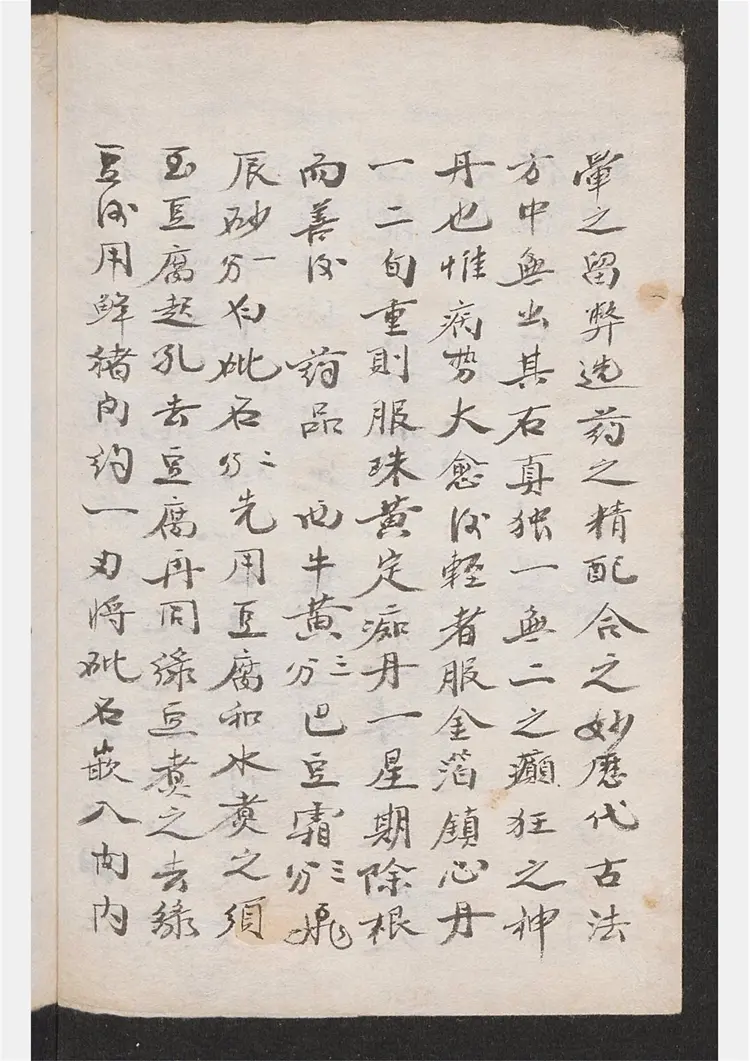 暈之留弊选药之精配合之妙歷代古法
方中無出其右真独一無二之癲狂之神
丹也惟病势大愈后輕者服金箔鎮心丹
一二旬重則服珠黄定痴丹一星期除根
而善后 药品 西牛黄三分巴豆霜三分飛
辰砂一分白砒石二分先用豆腐和水煮之須
至豆腐起孔去豆腐再同綠豆煮之去綠
豆后用鲜猪肉約一刃將砒石嵌入肉内